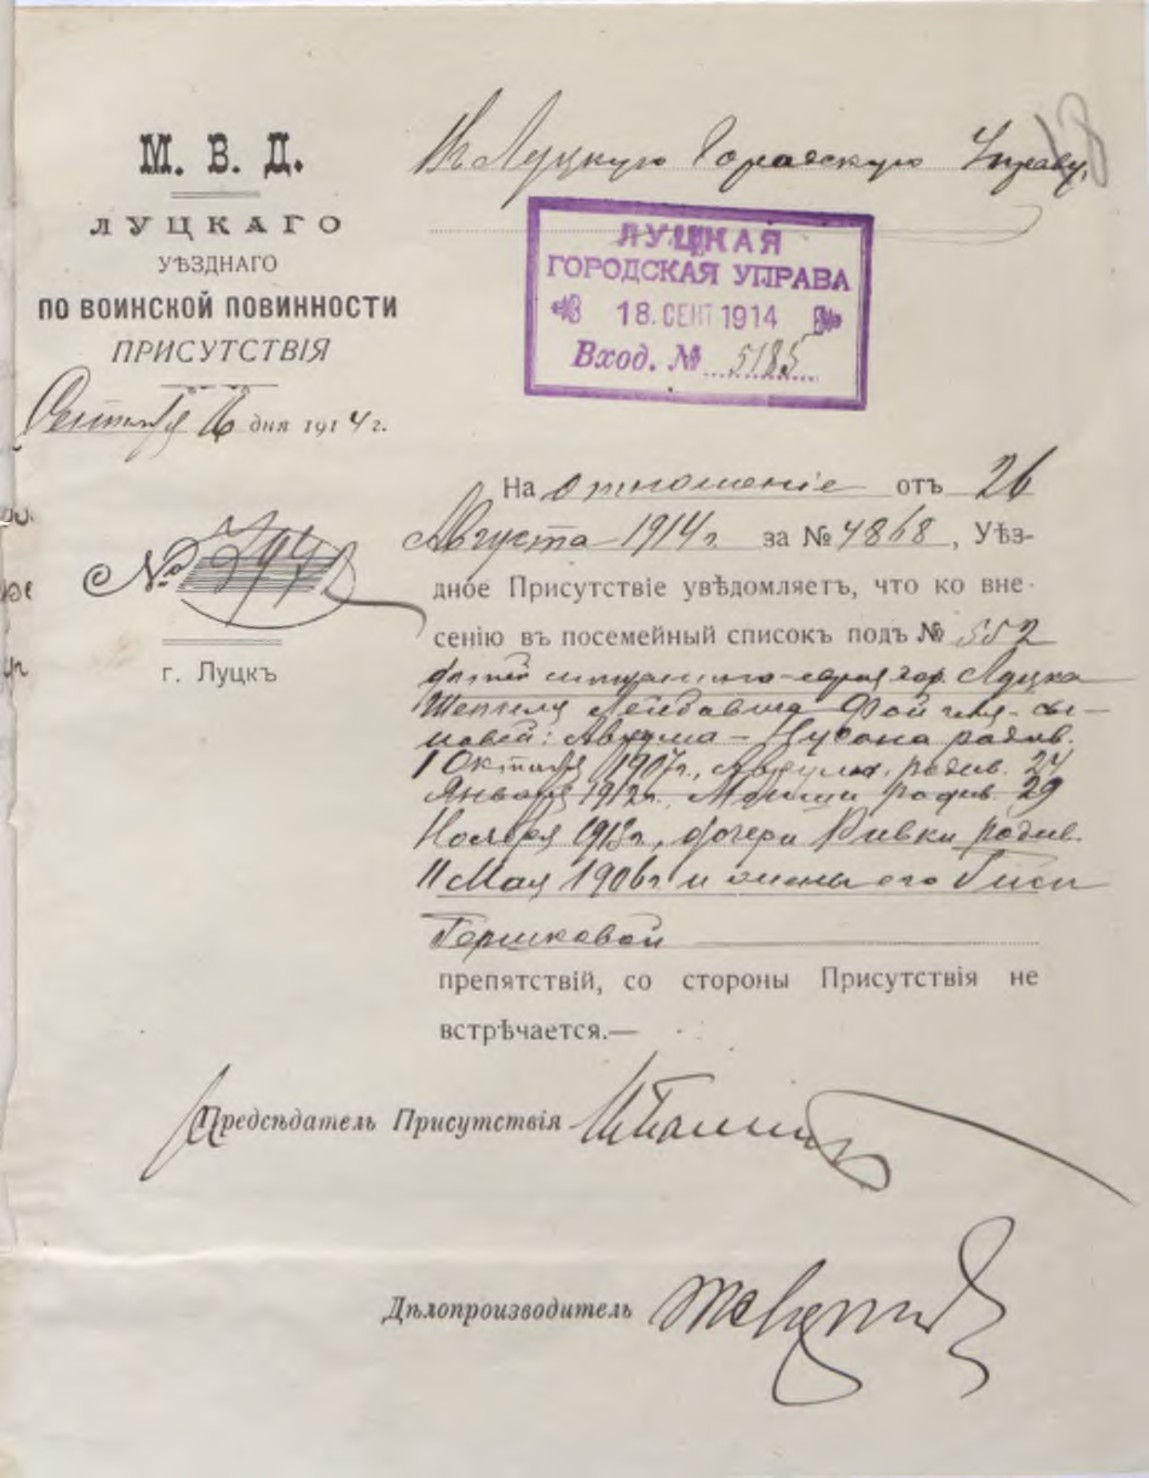 М. В. Д.
ЛУЦКАГО
УѢЗДНАГО
ПО ВОИНСКОЙ ПОВИННОСТИ
ПРИСУТСТВІЯ
Сентября 16 дня 1914 г.
№
г. Луцкъ
Въ Луцкую Городскую Управу.
ЛУЦКАЯ
ГОРОДСКАЯ УПРАВА
18. СЕНТ 1914
Вход. № 5185
На отношеніе отъ 26
Августа 1914 г. за № 4868, Уѣз-
дное Присутствіе увѣдомляетъ, что ко вне-
сенію въ посемейный списокъ подъ № 552
гор. Луцка
Лейбовича сы-
новей: Аврума-Нусона родив.
1 Октября 1907 г., родив. 24
Января 1912 г., родив. 29
Ноября 1913 г., дочери Ривки родив.
11 Мая 1906 г. и жены его Гиси
Гершковой
препятствій, со стороны Присутствія не
встрѣчается.—
Предсѣдатель Присутствія
Дѣлопроизводитель